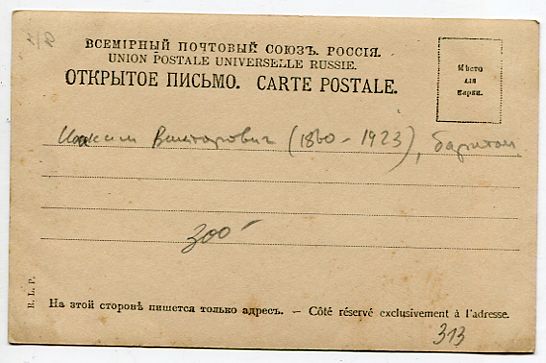 ВСЕМІРНЫЙ ПОЧТОВЫЙ СОЮЗЪ. РОССІЯ.
UNION POSTALE UNIVERSELLE RUSSIE.
ОТКРЫТОЕ ПИСЬМО. CARTE POSTALE.
Мѣсто
для
марки.
Викторович (1860-1923), баритон
300
R. L. P.
На этой сторонѣ пишется только адресъ. — Côté réservé exclusivement à l'adresse.
313